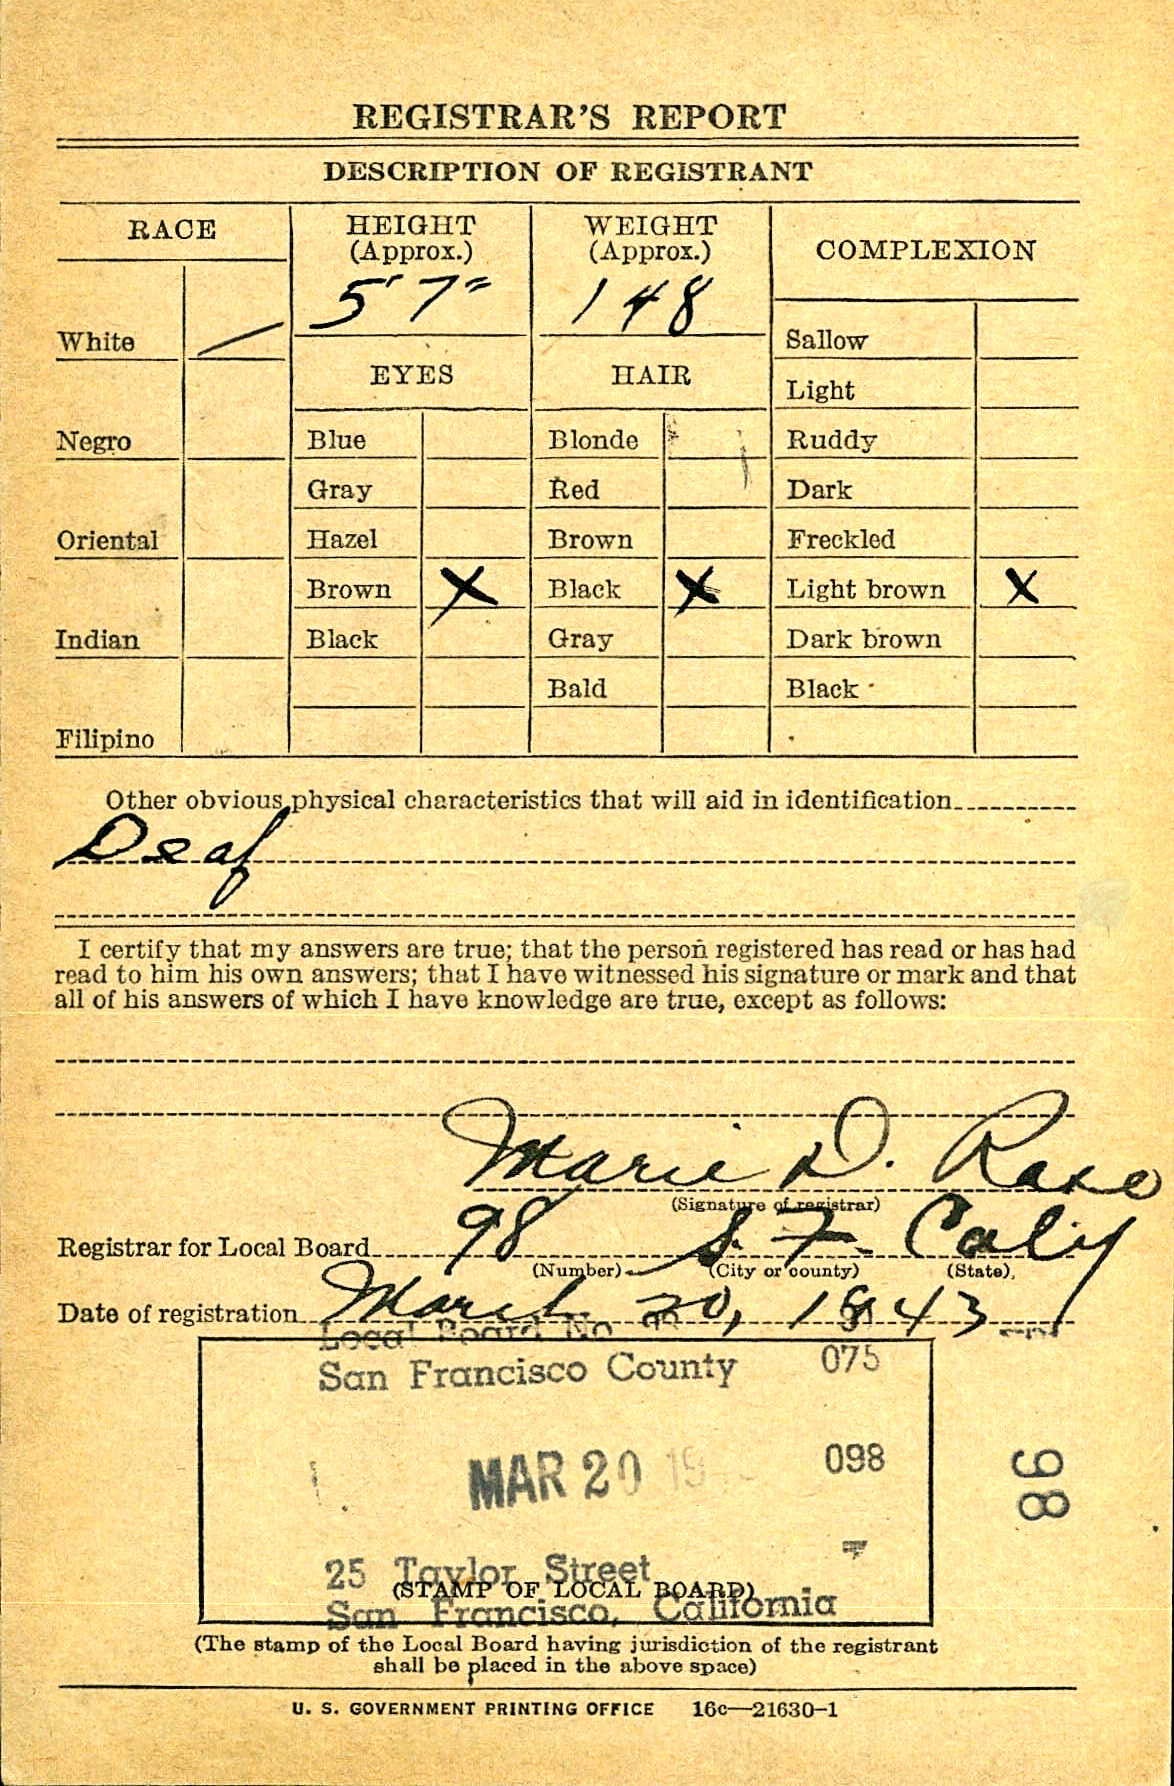 REGISTRAR'S REPORT
DESCRIPTION OF REGISTRANT
RACE
HEIGHT (Approx.)
WEIGHT (Approx.)
COMPLEXION
5' 7"
148
White
Sallow
EYES
HAIR
Light
Negro
Blue
Blonde
Ruddy
Gray
Red
Dark
Oriental
Hazel
Brown
Freckled
Brown X
Black X
Light brown X
Indian
Black
Gray
Dark brown
Bald
Black
Filipino
Other obvious physical characteristics that will aid in identification
Deaf
I certify that my answers are true; that the person registered has read or has had
read to him his own answers; that I have witnessed his signature or mark and that
all of his answers of which I have knowledge are true, except as follows:
Marie D.
(Signature of registrar)
Registrar for Local Board 98 S. F. Calif
(Number) (City or county) (State)
Date of registration March 20, 1943
Local Board No 98
San Francisco County 075
MAR 20 19 098
98
25 Taylor Street
(STAMP OF LOCAL BOARD)
San Francisco, California
(The stamp of the Local Board having jurisdiction of the registrant
shall be placed in the above space)
U. S. GOVERNMENT PRINTING OFFICE 16c—21630-1